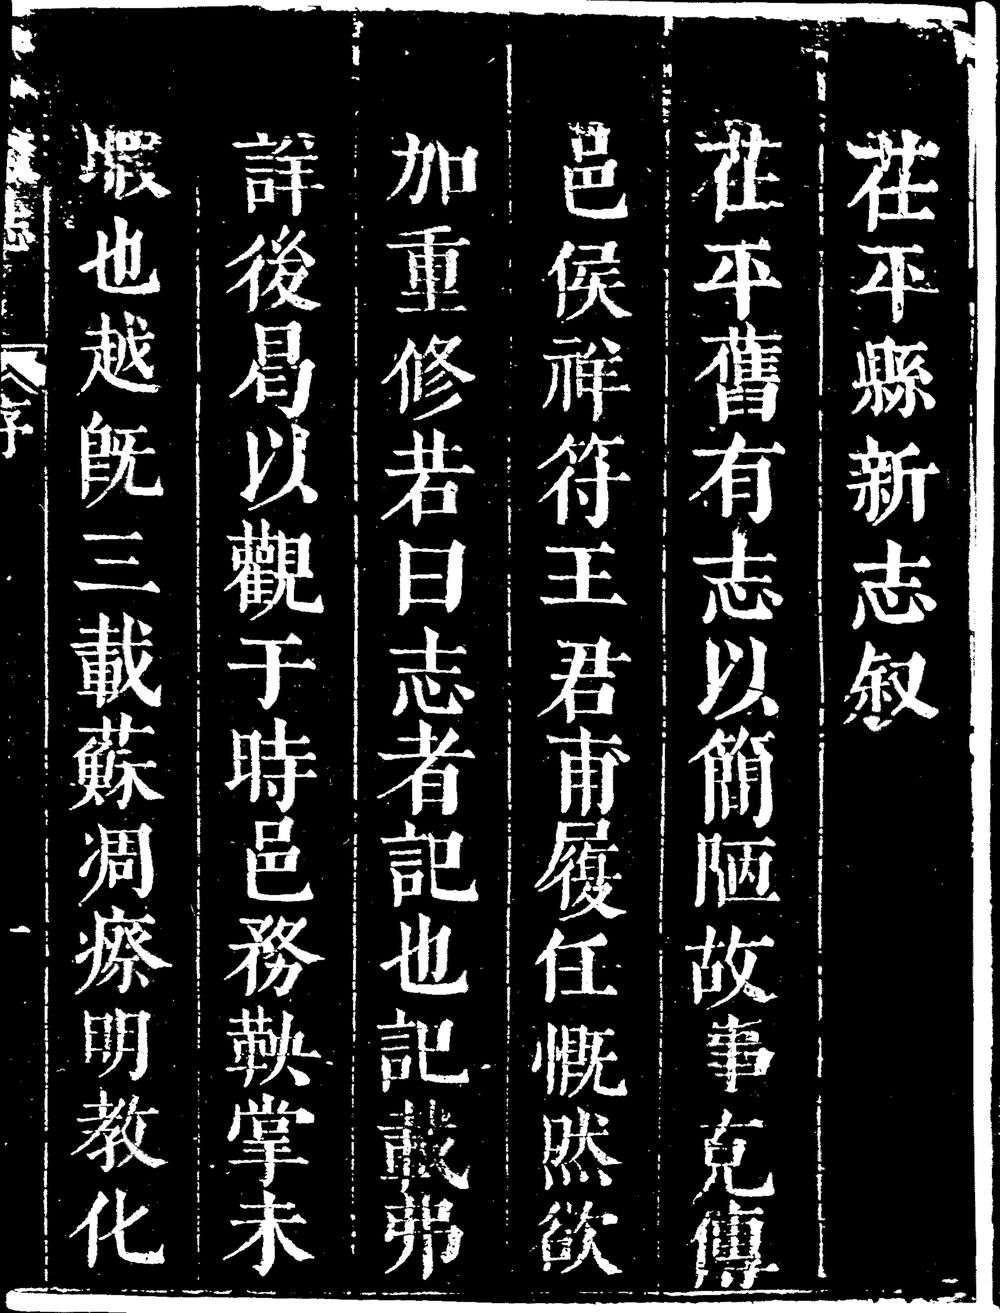 茌平縣新志叙
茌平舊有志以簡陋故事克傳
邑侯祥符王君甫履任慨然欲
加重修若曰志者記也記載弗
詳後曷以觀于時邑務鞅掌未
暇也越旣三載蘇凋瘵明教化
志
序
一